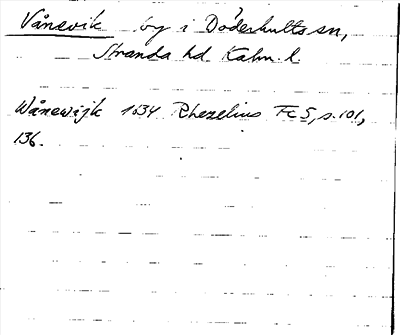 Vånevik by i Döderhults sn,
Stranda hd Kalm. l.
Wånewijk 1634 Rhezelius Fc5, s. 101,
136.